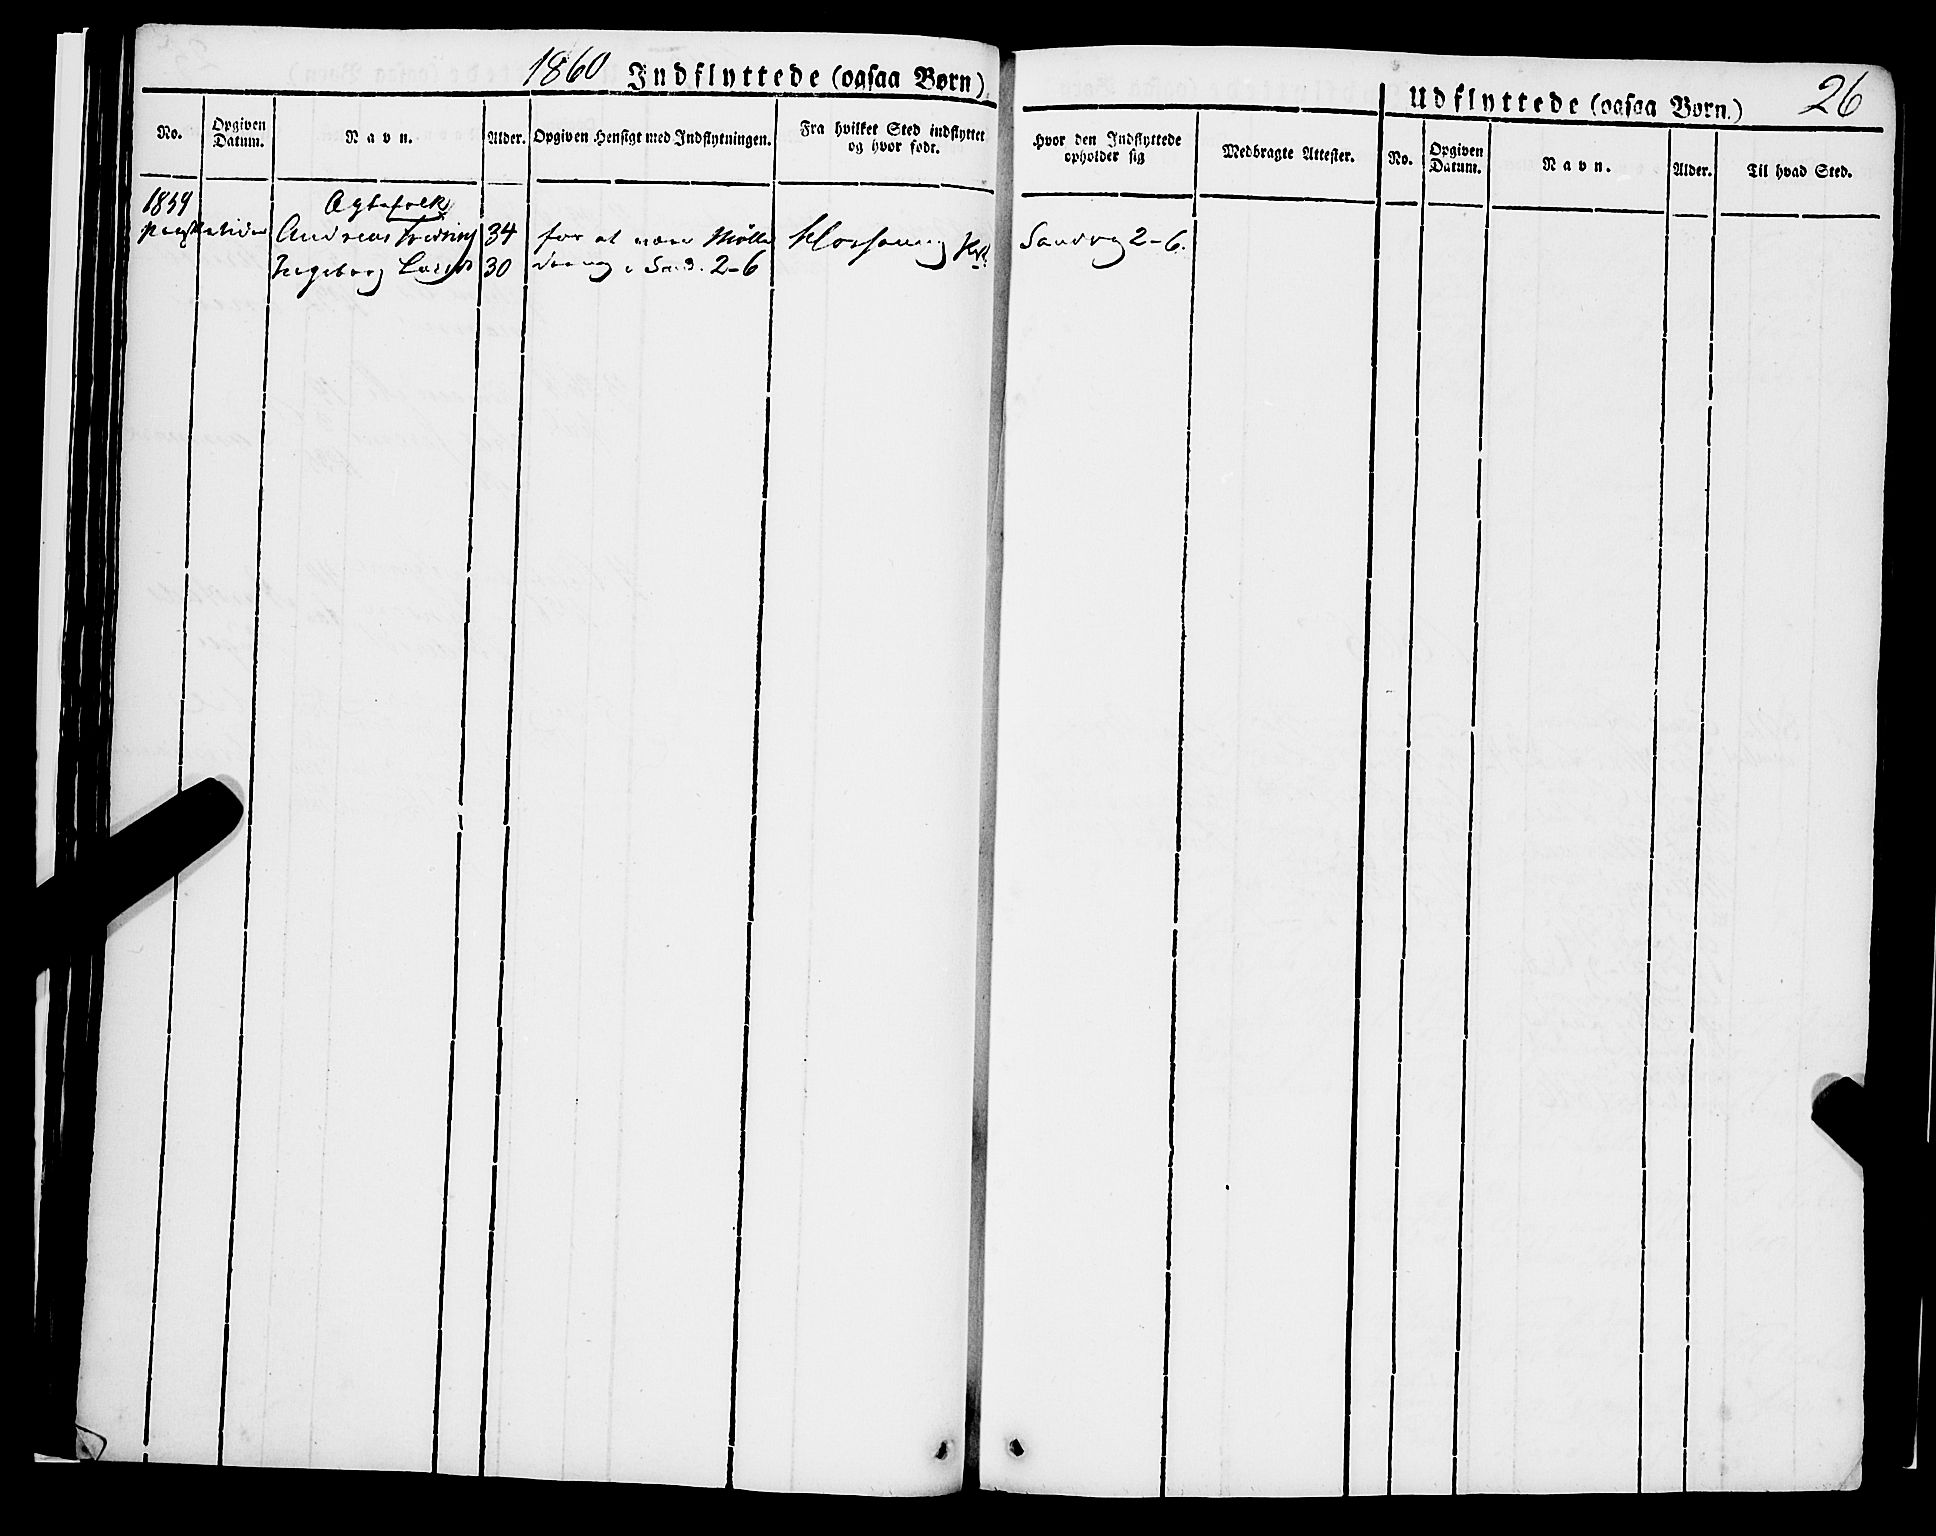 1860 Indflyttede (ogsaa Børn)
No.
Opgiven Datum.
Navn.
Alder.
Opgiven Hensigt med Indflytningen.
Fra hvilket Sted indflyttet
og hvor født.
1859
Ægtefolk
Andreas 34 for at være Mølle
Ingeborg 30 i Sand. 2-6
Udflyttede (ogsaa Børn.) 26
Hvor den Indflyttede
opholder sig
Medbragte Attester.
No.
Opgiven Datum.
Navn.
Alder.
Til hvad Sted.
Sandvig 2-6.